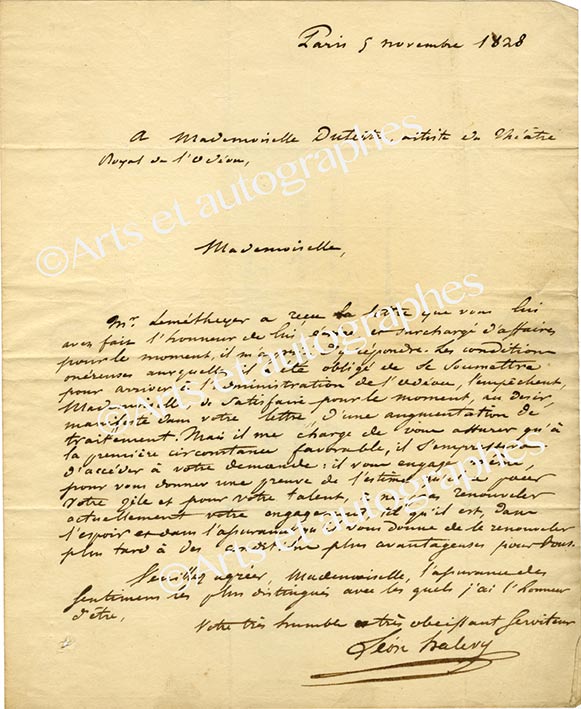 Paris 5 novembre 1828
A Mademoiselle artiste du Théâtre
Royal de l'Odéon,
Mademoiselle,
Mr. Lemétheyer a reçu la lettre que vous lui
avez fait l'honneur de lui Surchargé d'affaires
pour le moment, il répondre. Les conditions
onéreuses auxquelles il a été obligé de se Soumettre
pour arriver à l'administration de l'Odéon, l'empêchent,
Mademoiselle de Satisfaire pour le moment, au désir
manifesté dans votre lettre d'une augmentation de
traitement. Mais il me charge de vous assurer qu'à
la première circonstance favorable, il s'empressera
d'accéder à votre demande : il vous engage même,
pour vous donner une preuve de l'estime pour
votre zèle et pour votre talent, à renouveler
actuellement votre engagement tel qu'il est, dans
l'espoir et dans l'assurance vous donne de le renouveler
plus tard à des conditions plus avantageuses pour vous.
Veuillez agréer, Mademoiselle, l'assurance des
Sentimens les plus distingués avec les quels j'ai l'honneur
d'être,
Votre très humble et très obéissant Serviteur
Léon halevy
©Arts et autographes
©Arts et autographes
©Arts et autographes